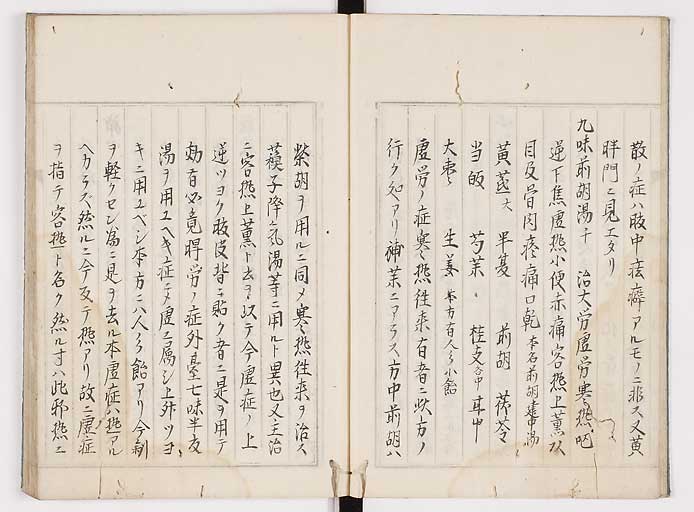 散ノ症ハ肢中痃癖アルモノニ非ス又黄
胖門ニ見エタリ
九味前胡湯千 治大労虚労寒熱呕
逆下焦虚熱小便赤痛客熱上薫頭
目及骨肉疼痛口乾 本名前胡建中湯
黄芪大 半夏 前胡 茯苓
当皈 芍薬 桂支各中 甘中
大枣 生姜 本方有人参小飴
虚労ノ症寒熱往来有者ニ此方ノ
行ク処アリ補薬ニアラス方中前胡ハ
紫胡ヲ用ルニ同メ寒熱往来ヲ治ス
蘓子降気湯等ニ用ルト異也又主治
ニ客熱上薫ト去ヲ以テ今虚症ノ上
逆ツヨク肢皮背ニ貼ク者ニ是ヲ用テ
効有必竟労ノ症外基七味半夏
湯ヲ用ユヘキ症ニメ虚ニ属シ上外ツヨ
キニ用ユベシ本方ニハ人参飴アリ今剤
ヲ軽クセン為ニ是ヲ去ル本虚症ハ熱アル
ヘカラス然ルニ今反テ熱アリ故ニ虚症
ヲ指テ客熱ト名ク然ル寸ハ此邪熱ニ